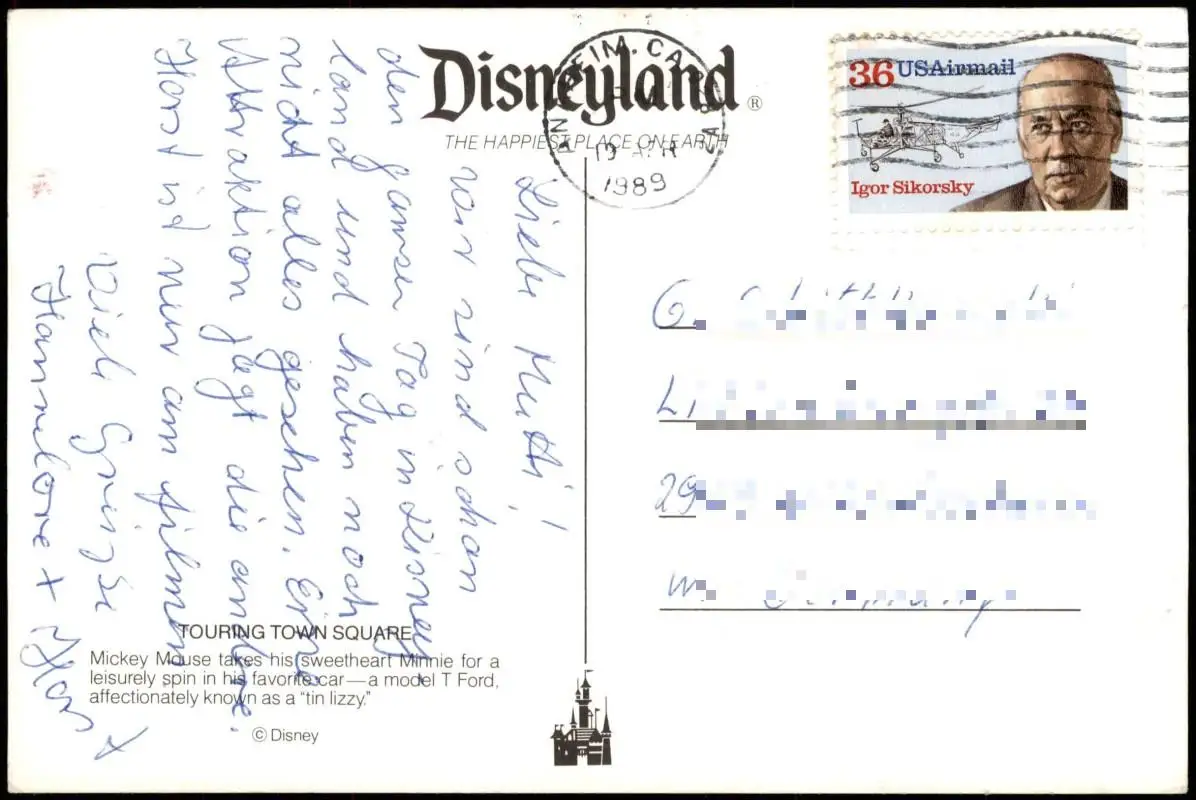 Disneyland®
THE HAPPIEST PLACE ON EARTH
ANAHEIM, CA
1989
36 USAirmail
Igor Sikorsky
Liebe Mutti!
wir sind schon
den ganzen Tag in Disney-
land und haben noch
nicht alles gesehen. Eine
Attraktion jagt die andere.
Horst ist nur am filmen
Viele Grüße
Hannelore + Horst
G.
Li
29
W. Germany
TOURING TOWN SQUARE
Mickey Mouse takes his sweetheart Minnie for a
leisurely spin in his favorite car—a model T Ford,
affectionately known as a “tin lizzy.”
© Disney